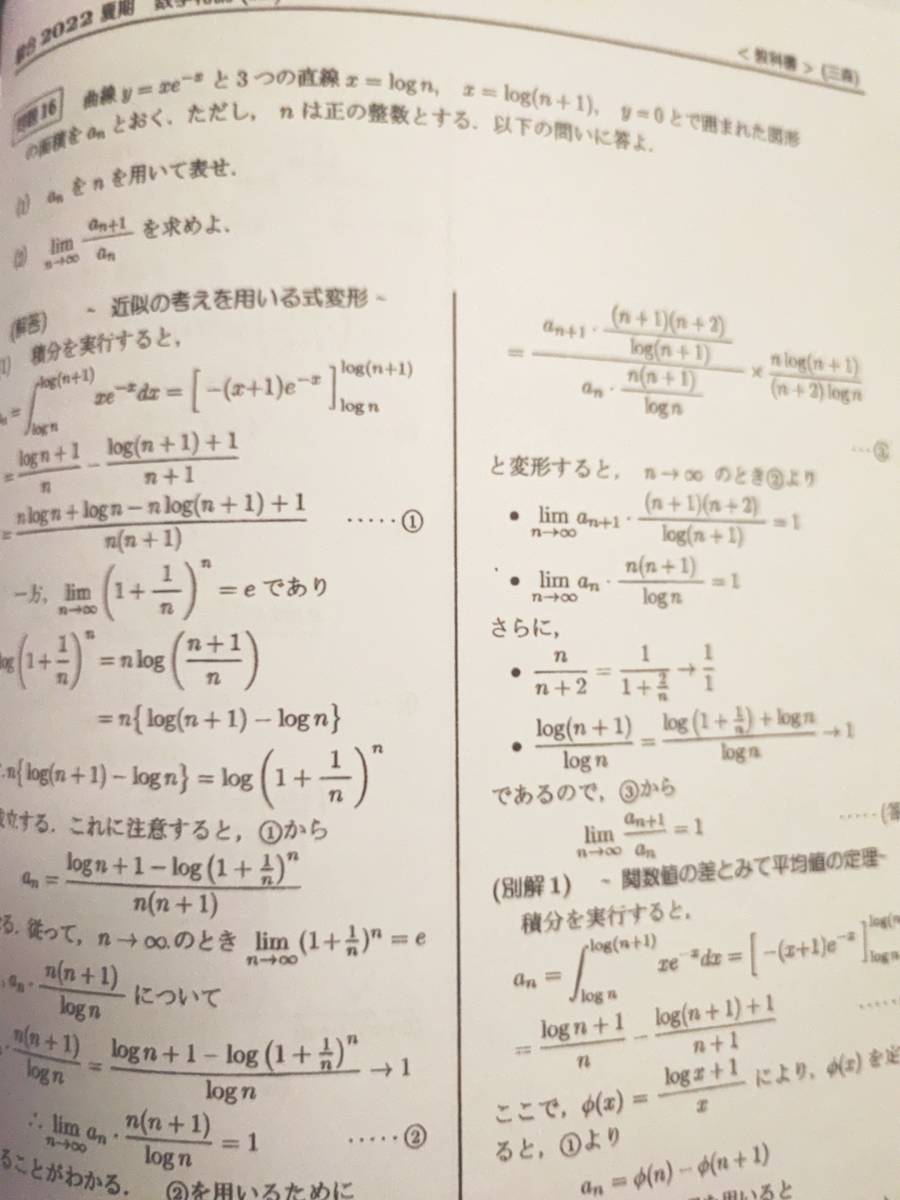 2022 夏期
< 教科書 > (三森)
16 曲線 y = xe^{-x} と 3 つの直線 x = log n, x = log(n+1), y = 0 とで囲まれた図形
の面積を a_n とおく．ただし， n は正の整数とする．以下の問いに答よ．
(1) a_n を n を用いて表せ．
(2) lim_{n→∞} a_{n+1}/a_n を求めよ．
(解答) ~ 近似の考えを用いる式変形 ~
積分を実行すると，
= ∫_{log n}^{log(n+1)} xe^{-x}dx = [ -(x+1)e^{-x} ]_{log n}^{log(n+1)}
= (log n+1)/n - (log(n+1)+1)/(n+1)
= (n log n + log n - n log(n+1) + 1)/(n(n+1)) ·····①
一方, lim_{n→∞} (1 + 1/n)^n = e であり
(1 + 1/n)^n = n log ((n+1)/n)
= n{ log(n+1) - log n }
n{log(n+1) - log n} = log (1 + 1/n)^n
立する．これに注意すると，①から
a_n = (log n + 1 - log (1 + 1/n)^n)/(n(n+1))
る．従って，n → ∞.のとき lim_{n→∞} (1+1/n)^n = e
a_n · n(n+1)/log n について
· n(n+1)/log n = (log n + 1 - log (1 + 1/n)^n)/log n → 1
∴ lim_{n→∞} a_n · n(n+1)/log n = 1 ·····②
ることがわかる． ②を用いるために
= (a_{n+1} · (n+1)(n+2)/log(n+1))/(a_n · n(n+1)/log n) × (n log(n+1))/((n+2) log n)
···③
と変形すると， n → ∞ のとき②より
• lim_{n→∞} a_{n+1} · (n+1)(n+2)/log(n+1) = 1
• lim_{n→∞} a_n · n(n+1)/log n = 1
さらに，
• n/(n+2) = 1/(1+2/n) → 1/1
• log(n+1)/log n = (log (1+1/n) + log n)/log n → 1
であるので，③から
lim_{n→∞} a_{n+1}/a_n = 1 ·····(答
(別解 1) ~ 関数値の差とみて平均値の定理~
積分を実行すると，
a_n = ∫_{log n}^{log(n+1)} xe^{-x}dx = [ -(x+1)e^{-x} ]
= (log n+1)/n - (log(n+1)+1)/(n+1) ·····
ここで，φ(x) = (log x+1)/x により，φ(x) を定
ると，①より
a_n = φ(n) - φ(n+1)